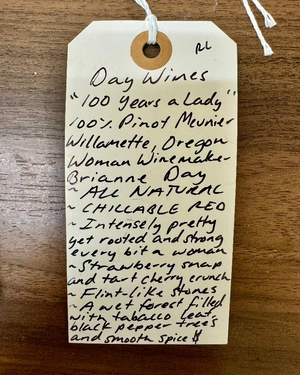 RL
Day Wines
"100 years a Lady"
100% Pinot Meunier
Willamette, Oregon
Woman Winemaker
Brianne Day
~ ALL NATURAL
~ CHILLABLE RED
~ Intensely pretty
yet rooted and strong
every bit a woman
~ Strawberry snap
and tart cherry crunch
~ Flint-like stones
~ A wet forest filled
with tobacco leaf,
black pepper trees
and smooth spice